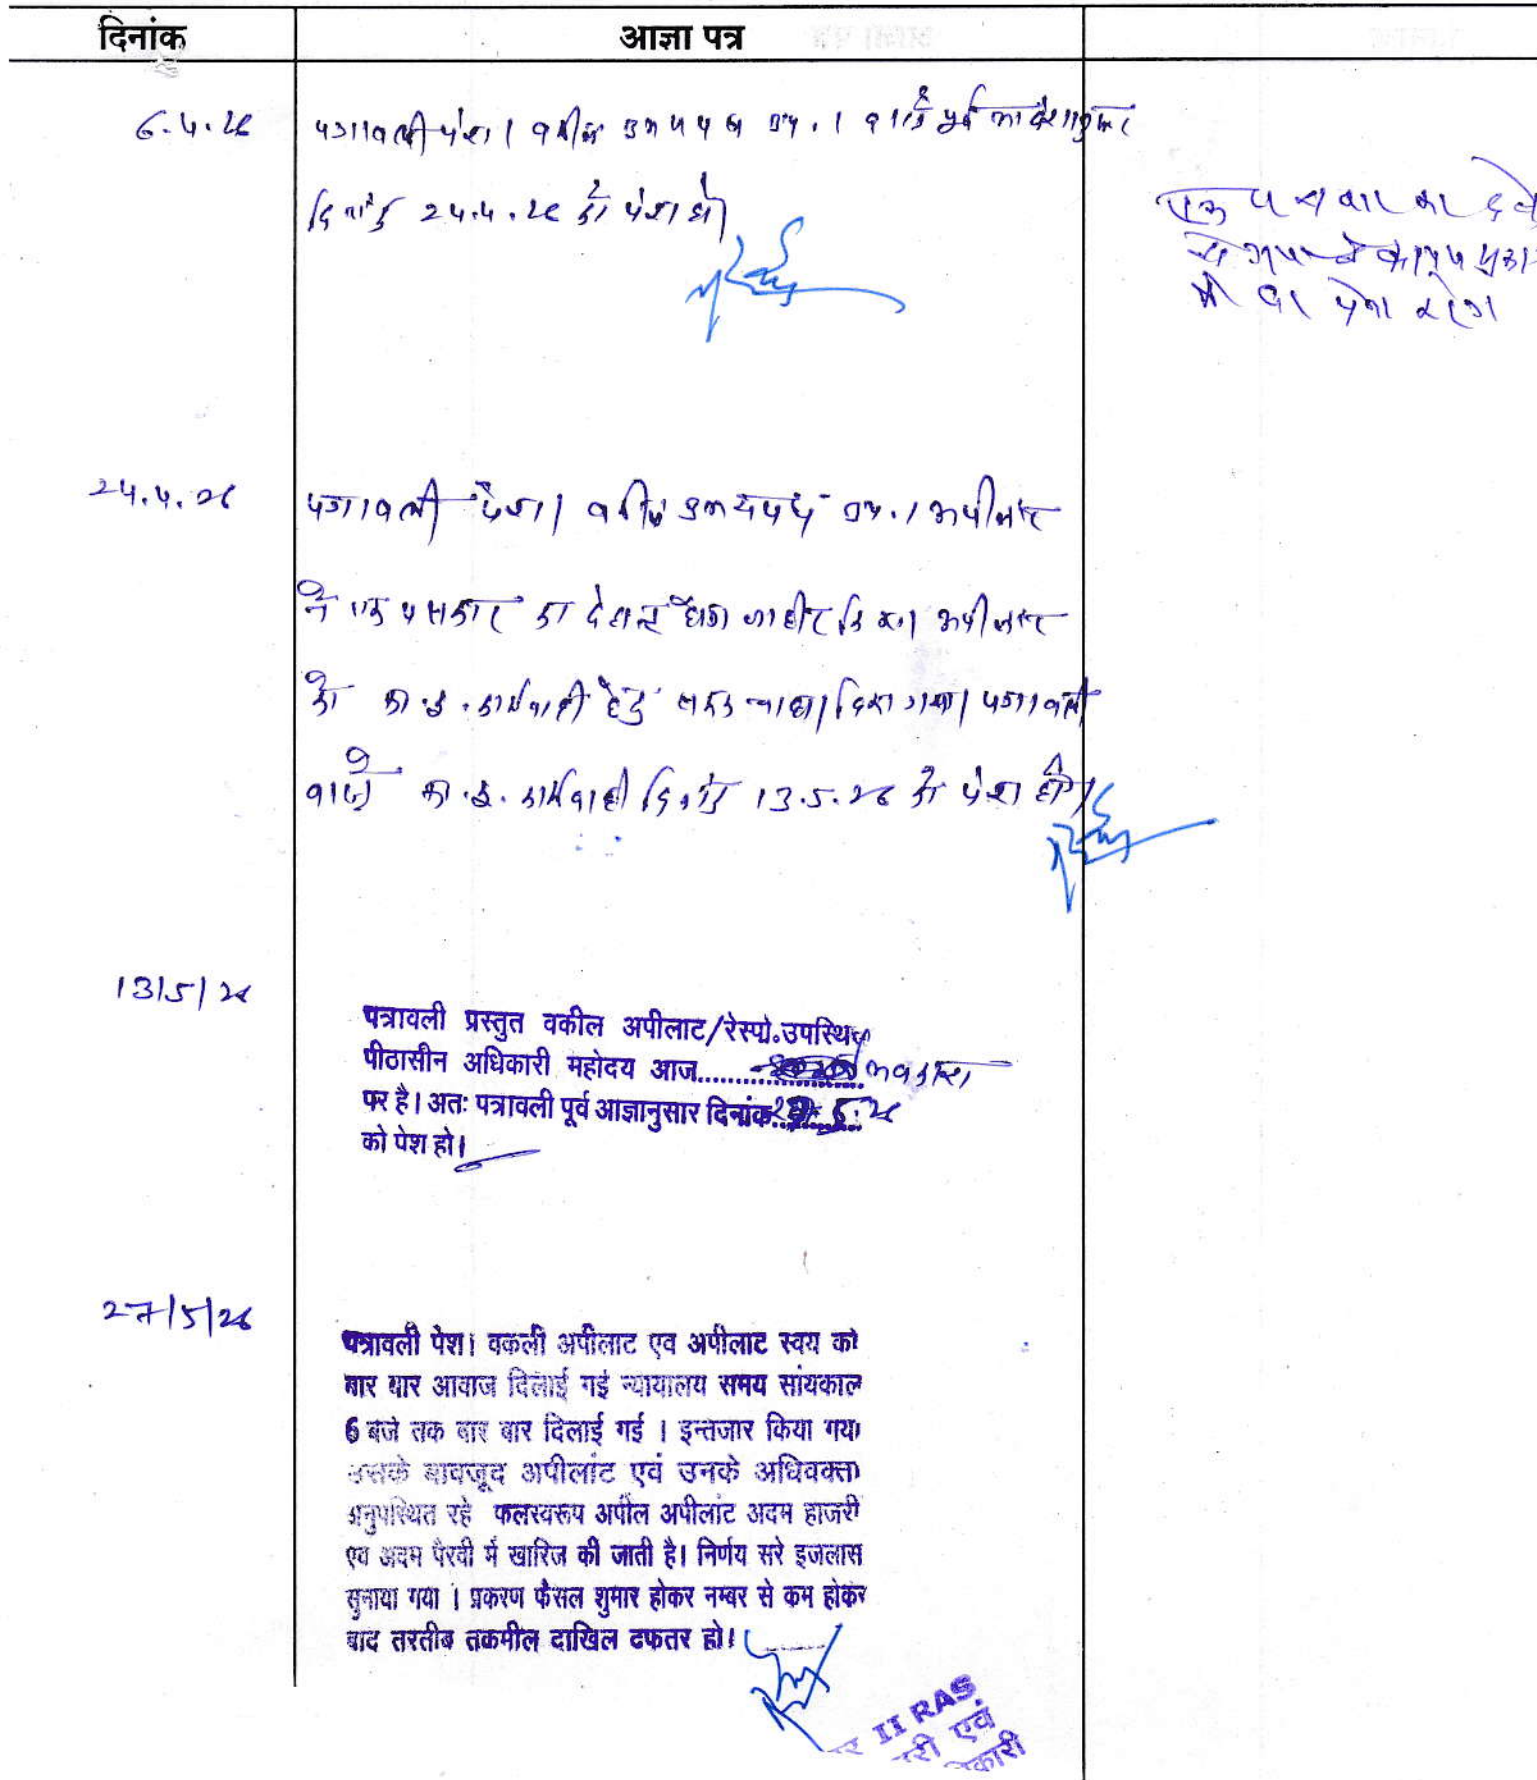 दिनांक आज्ञा पत्र
6.4.26 पत्रावली पेश। वकील उभयपक्ष उप.। वास्ते पूर्व आदेशानुसार
दिनांक 24.4.26 को पेश हो।
एक
24.4.26 पत्रावली पेश। वकील उभयपक्ष उप.। अपीलांट
ने एक पक्षकार का देहान्त होना जाहीर किया। अपीलांट
को का.ई. कार्यवाही हेतु दिया गया। पत्रावली
वास्ते का.ई. कार्यवाही दिनांक 13.5.26 को पेश हो।
13/5/26
पत्रावली प्रस्तुत वकील अपीलाट/रेस्पो.उपस्थित
पीठासीन अधिकारी महोदय आज............ अवकाश
पर है। अतः पत्रावली पूर्व आज्ञानुसार दिनांक 27.5.26
को पेश हो।
27/5/26
पत्रावली पेश। वकली अपीलाट एव अपीलाट स्वय को
बार बार आवाज दिलाई गई न्यायालय समय सांयकाल
6 बजे तक बार बार दिलाई गई । इन्तजार किया गया
उसके बावजूद अपीलांट एवं उनके अधिवक्ता
अनुपस्थित रहे फलस्वरूप अपील अपीलांट अदम हाजरी
एव अदम पैरवी में खारिज की जाती है। निर्णय सरे इजलास
सुनाया गया । प्रकरण फैसल शुमार होकर नम्बर से कम होकर
बाद तरतीब तकमील दाखिल दफतर हो।
II RAS
एवं